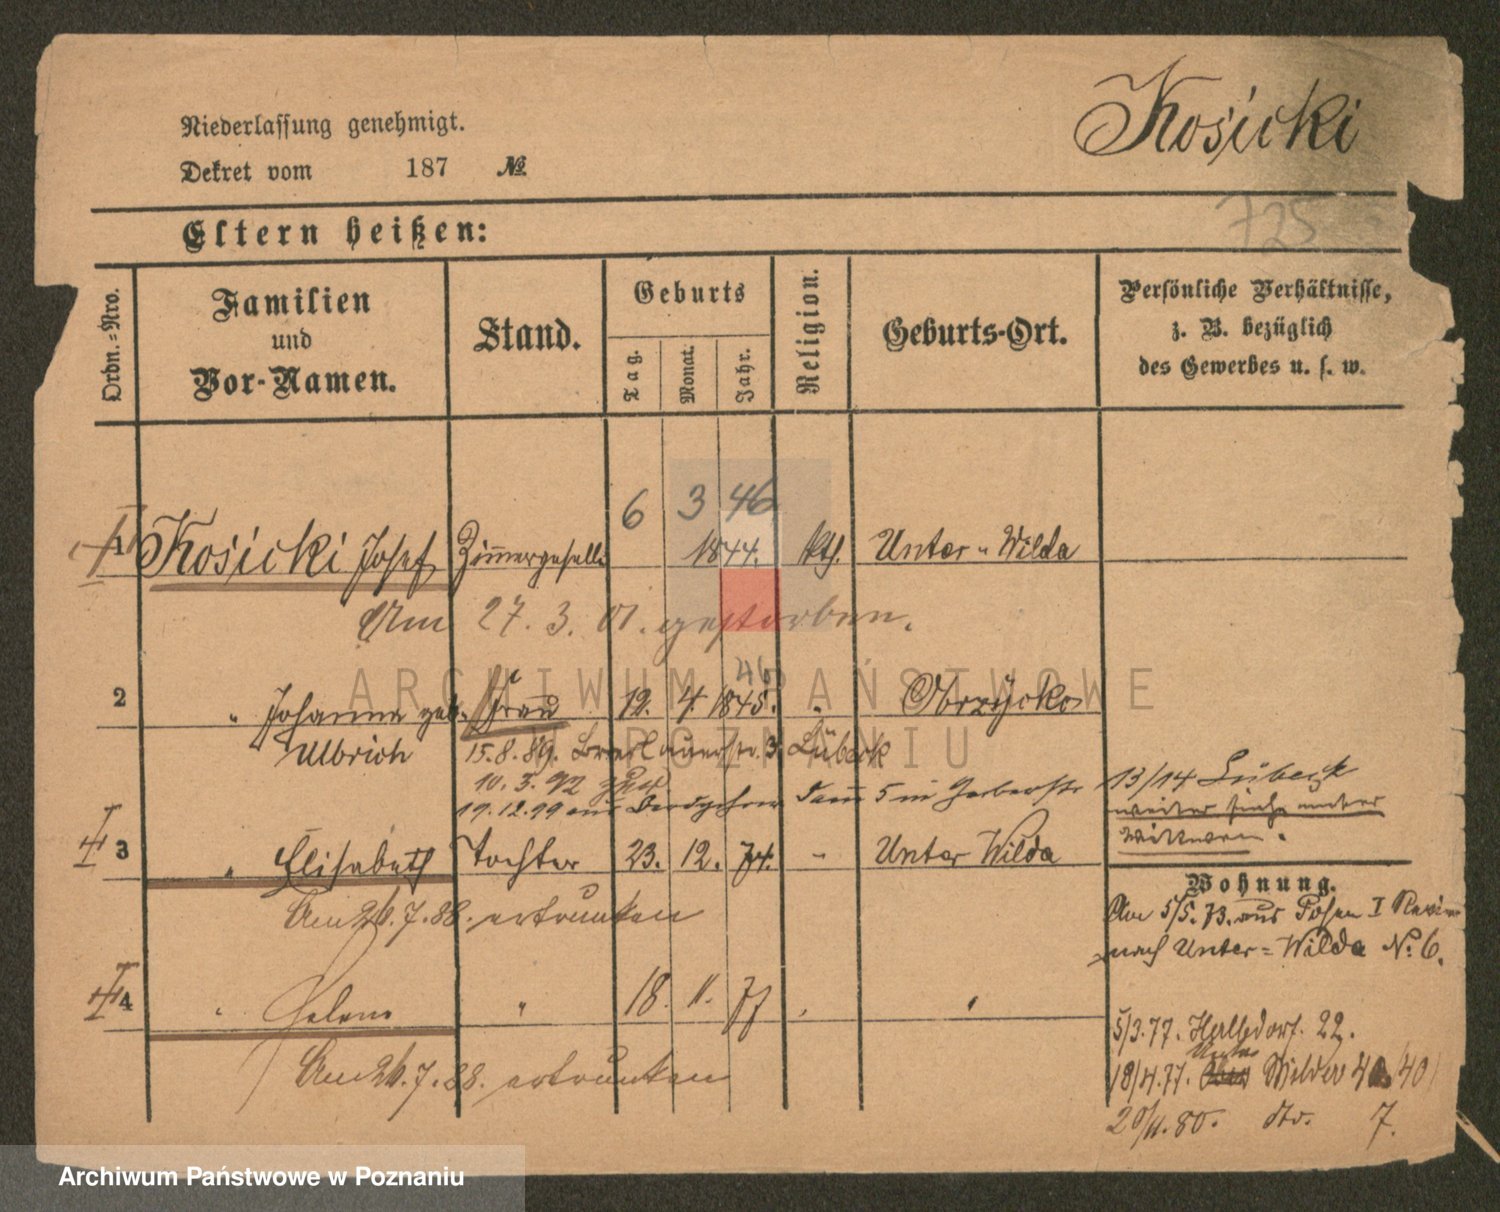 Kosicki
Niederlassung genehmigt.
Dekret vom 187 №
725
Eltern heißen:
Ordn.-Nro.
Familien
und
Vor-Namen.
Stand.
Geburts
Tag.
Monat.
Jahr.
Religion.
Geburts-Ort.
Persönliche Verhältnisse,
z. B. bezüglich
des Gewerbes u. s. w.
6 3 46
1 Kosicki Josef Zimmergeselle 1844. kth. Unter-Wilda
Am 27. 3. 01. gestorben.
46
2 " Johanna geb. Frau 12. 4. 1845. " Obrzycko
Ullbrich
15.8.89. Breslauerstr. 3. Lübeck
10. 3. 92
19.12.99 5 in Gerberstr 13/14 Lübeck
weiter siehe unter
Wittwen.
3 " Elisabeth Tochter 23. 12. 74. " Unter Wilda
Am 26.7.88. ertrunken
Wohnung.
Am 5/5. 73. aus Posen I Revier
nach Unter-Wilda No. 6.
4 " Helene " 18. 11. 77 " "
Am 26.7.88. ertrunken
5/3.77. Halbdorf. 22.
Unter
18/4.77. Wilder 40
29/11.80. dto. 7.
ARCHIWUM PAŃSTWOWE
W POZNANIU
Archiwum Państwowe w Poznaniu